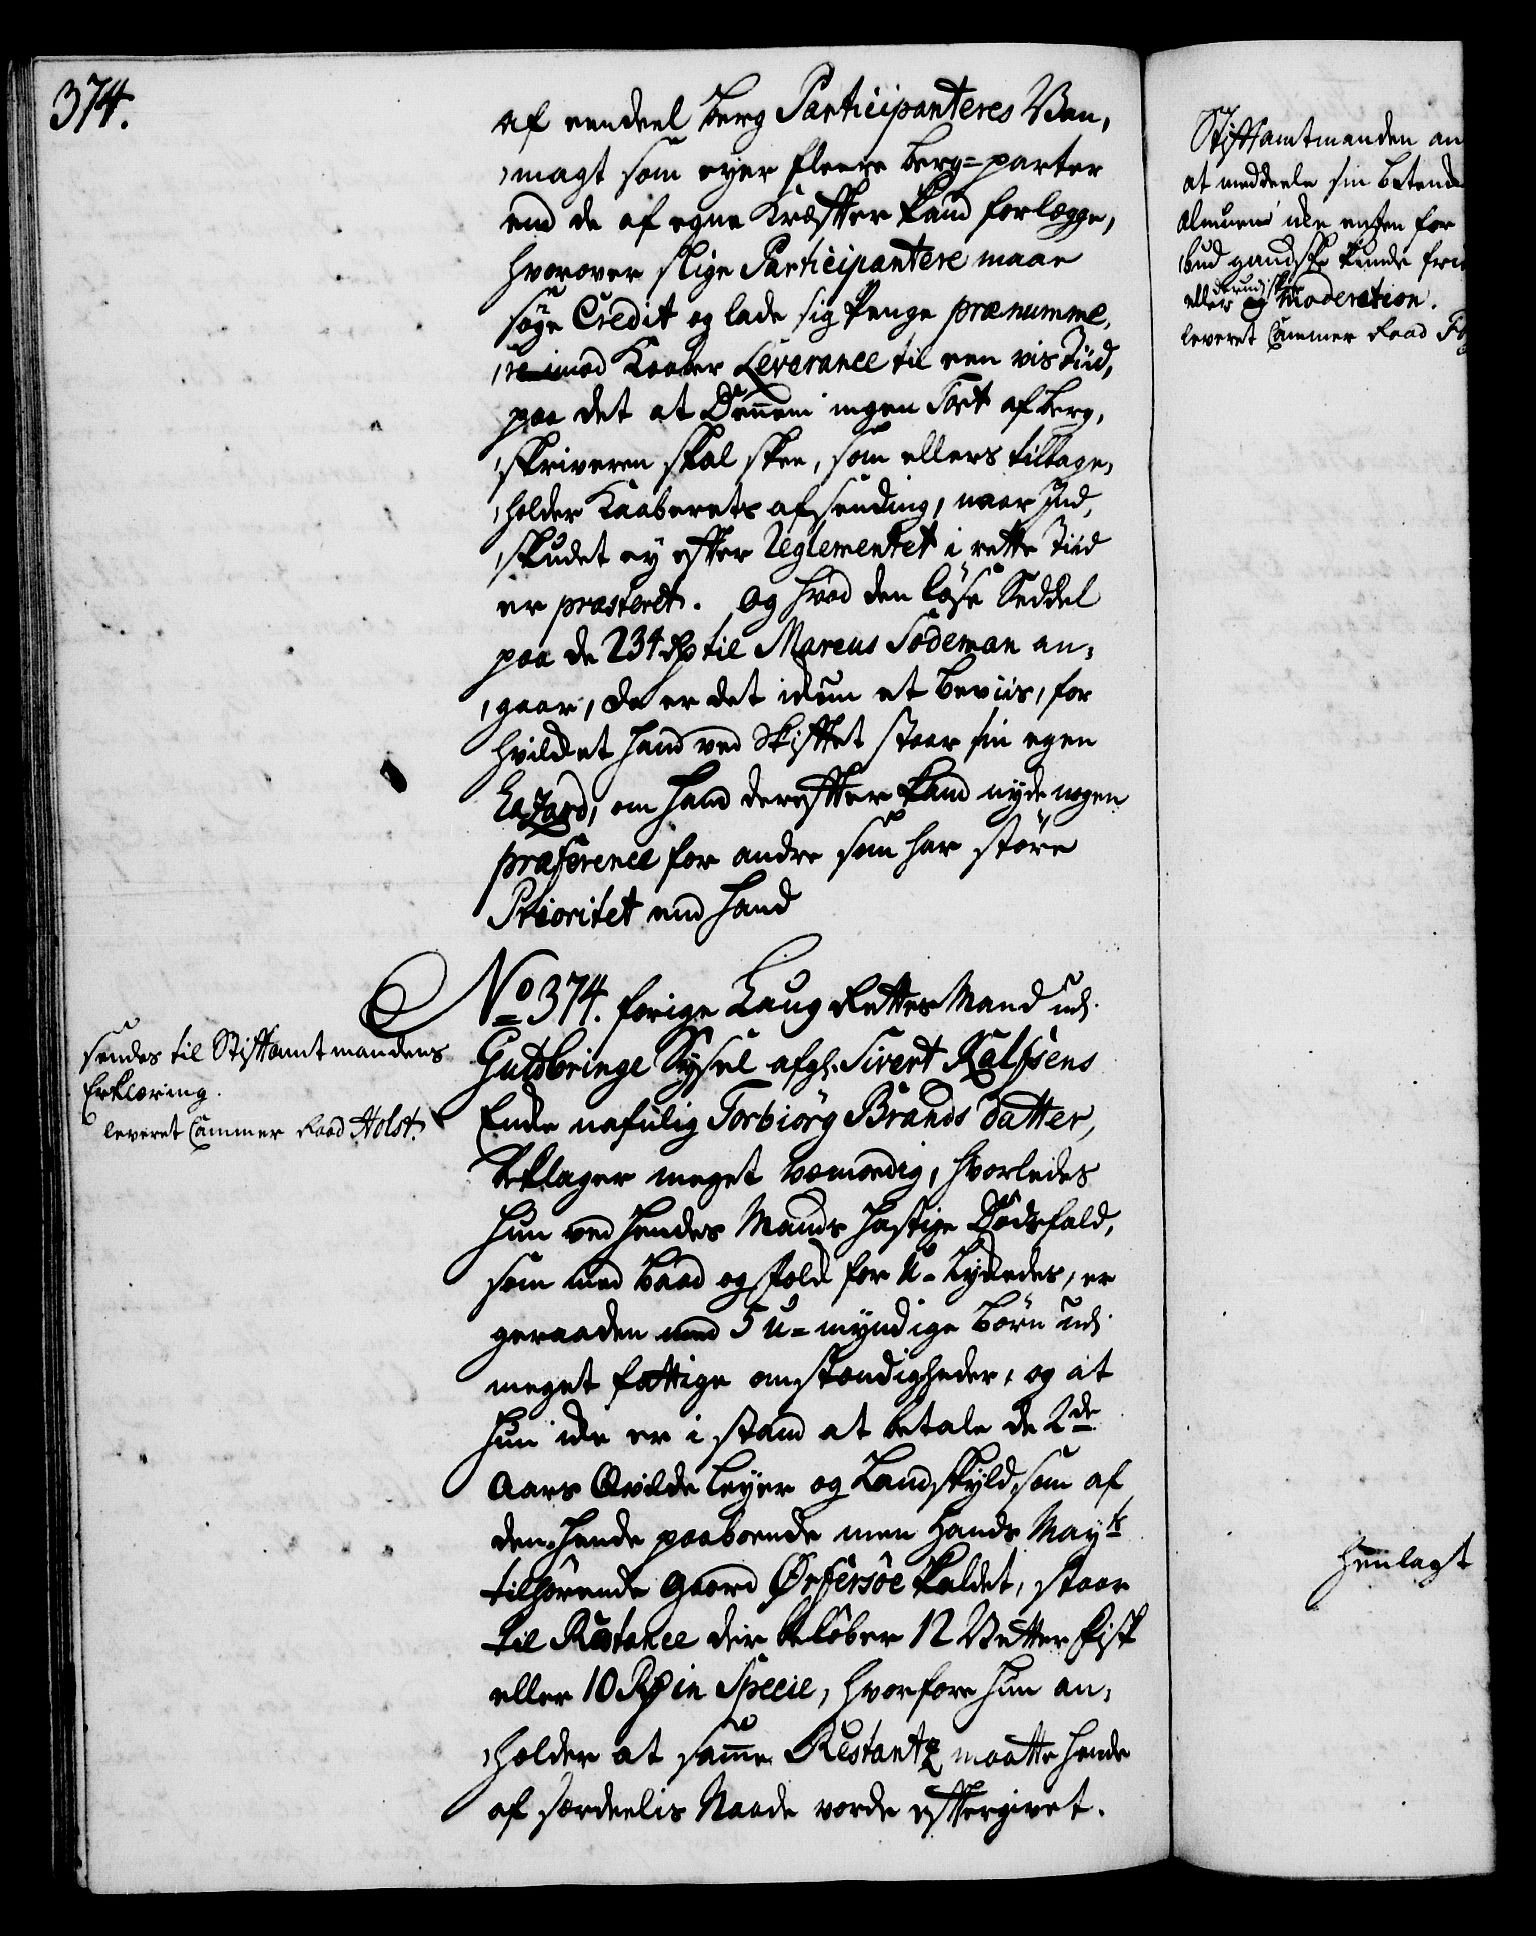 374.
af eendeel berg Participanteres Van,
,magt som eyer fleere berg=parter
end de af egne Kræffter kand forlægge,
hvorover slige Participantere maae
søge Credit og lade sig penge prænumme,
,re imod Kaaber Leverance til een vis Tiid,
paa det at Dennem ingen Tort af berg,
,skriveren skal skee, som ellers tilbage,
,holder Kaaberets afsending, naar Ind,
,skudet ey effter Reglementet i rette Tiid
er præsteret. Og hvad den løse Seddel
paa de 234 Rd til Marcus Södeman an,
,gaar, da er det ickun et beviis, for
hvilcket hand ved Skifftet staar sin egen
Hazard, om hand dereffter kand nyde nogen
præference for andre som har större
Prioritet end hand
No 374. forige Laug Rettes Mand udj
Guldbringe Sysel afgl. Sivert Kalfsens
Encke nafnlig Torbiörg Brands datter,
beklager meget vemodig, hvorledes
hun ved hendes Mands hastige Dödsfald,
som med baad og folck for U-Lyckedes, er
geraaden med 5 u=myndige börn udj
meget fattige omstændigheder, og at
hun icke er i stand at betale de 2de
Aars Qvilde leyer og Landskyld, som af
den hende paaboende men Hands Mayts
tilhørende Gaard Ørfersöe kaldet, staar
til Restance der beløber 12 Vetter fisk
eller 10 Rd in Specie, hvorfore hun an,
,holder at samme Restantz maatte hende
af særdeelis Naade vorde efftergivet.
sendes til Stifftamtmandens
Erklæring.
leveret Cammer Raad Holst.
Stifftamtmanden an
at meddeele sin betænck
allene icke enten for
bud gandske kunde frie
eller og Moderation.
leveret Cammer Raad
Henlagt